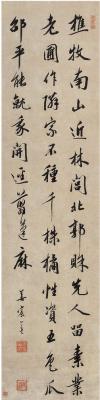 樵牧南山近林閭北郭賒先人留素業
老圃作鄰家不種千株橘惟資五色瓜
邵平能就我開徑翦蓬麻
姜宸英